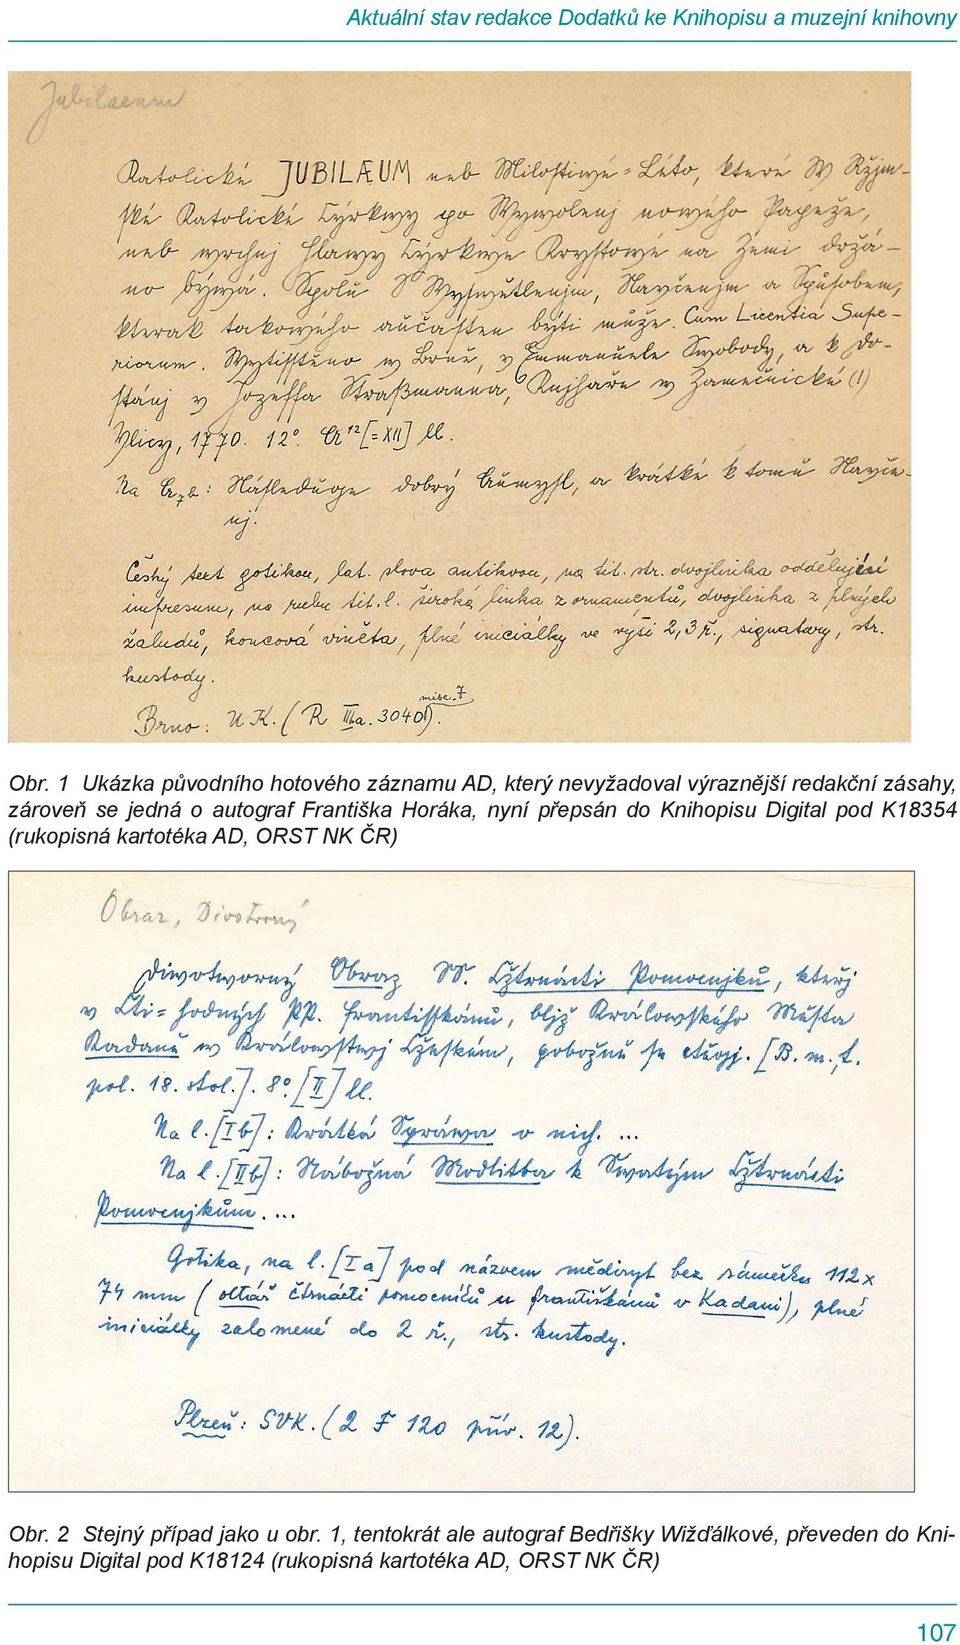 Aktuální stav redakce Dodatků ke Knihopisu a muzejní knihovny
Jubilaeum
Katolické JUBILÆUM neb Milostiwé=Léto, které W Ržjm-
ské Katolické Cýrkwy po Wywolenj nowého Papeže,
neb wrchnj hlawy Cýrkwe Krystowé na Zemi držá-
no býwá. Spolu S Wyswětlenjm, Naučenjm a Spůsobem,
kterak takowého aučasten býti může. Cum Licentia Supe-
riorum. Wytisstěno w Brně, v Emmanuele Swobody, a k do-
stánj v Jozeffa Straßmanna, Knjhaře w Zamečnické (!)
Vlicy, 1770. 12°. A¹²[=XII] ll.
Na A7b: Následuge dobrý Aumysl, a krátké k tomu Nauče-
nj.
Český text gotikou, lat. slova antikvou, na tit. str. dvojlinka oddělující
impresum, na rubu tit. l. široká linka z ornamentů, dvojlinka z plných
žaludů, koncová viněta, plné iniciálky ve výši 2, 3 ř., signatury, str.
kustody.
Brno: UK. (R IIIa. 3040). misc. 7
Obr. 1 Ukázka původního hotového záznamu AD, který nevyžadoval výraznější redakční zásahy,
zároveň se jedná o autograf Františka Horáka, nyní přepsán do Knihopisu Digital pod K18354
(rukopisná kartotéka AD, ORST NK ČR)
Obraz, Divotvorný
Diwotworný Obraz SS. Cžtrnácti Pomocnjků, kteřj
v Cti=hodných PP. Frantisskánů, bljž Králowského Města
Kadaně w Králowstwj Cžeském, pobožně se ctěgj. [B. m. t.
pol. 18. stol.]. 8°. [II] ll.
Na l. [Ib]: Krátká Spráwa o nich. ...
Na l. [IIb]: Nábožná Modlitba k Swatým Cžtrnácti
Pomocnjkům. ...
Gotika, na l. [Ia] pod názvem mědiryt bez rámečku 112 x
74 mm (oltář čtrnácti pomocníků u františkánů v Kadani), plné
iniciálky zalomené do 2 ř., str. kustody.
Plzeň: SVK. (2 F 120 přív. 12).
Obr. 2 Stejný případ jako u obr. 1, tentokrát ale autograf Bedřišky Wižďálkové, převeden do Kni-
hopisu Digital pod K18124 (rukopisná kartotéka AD, ORST NK ČR)
107